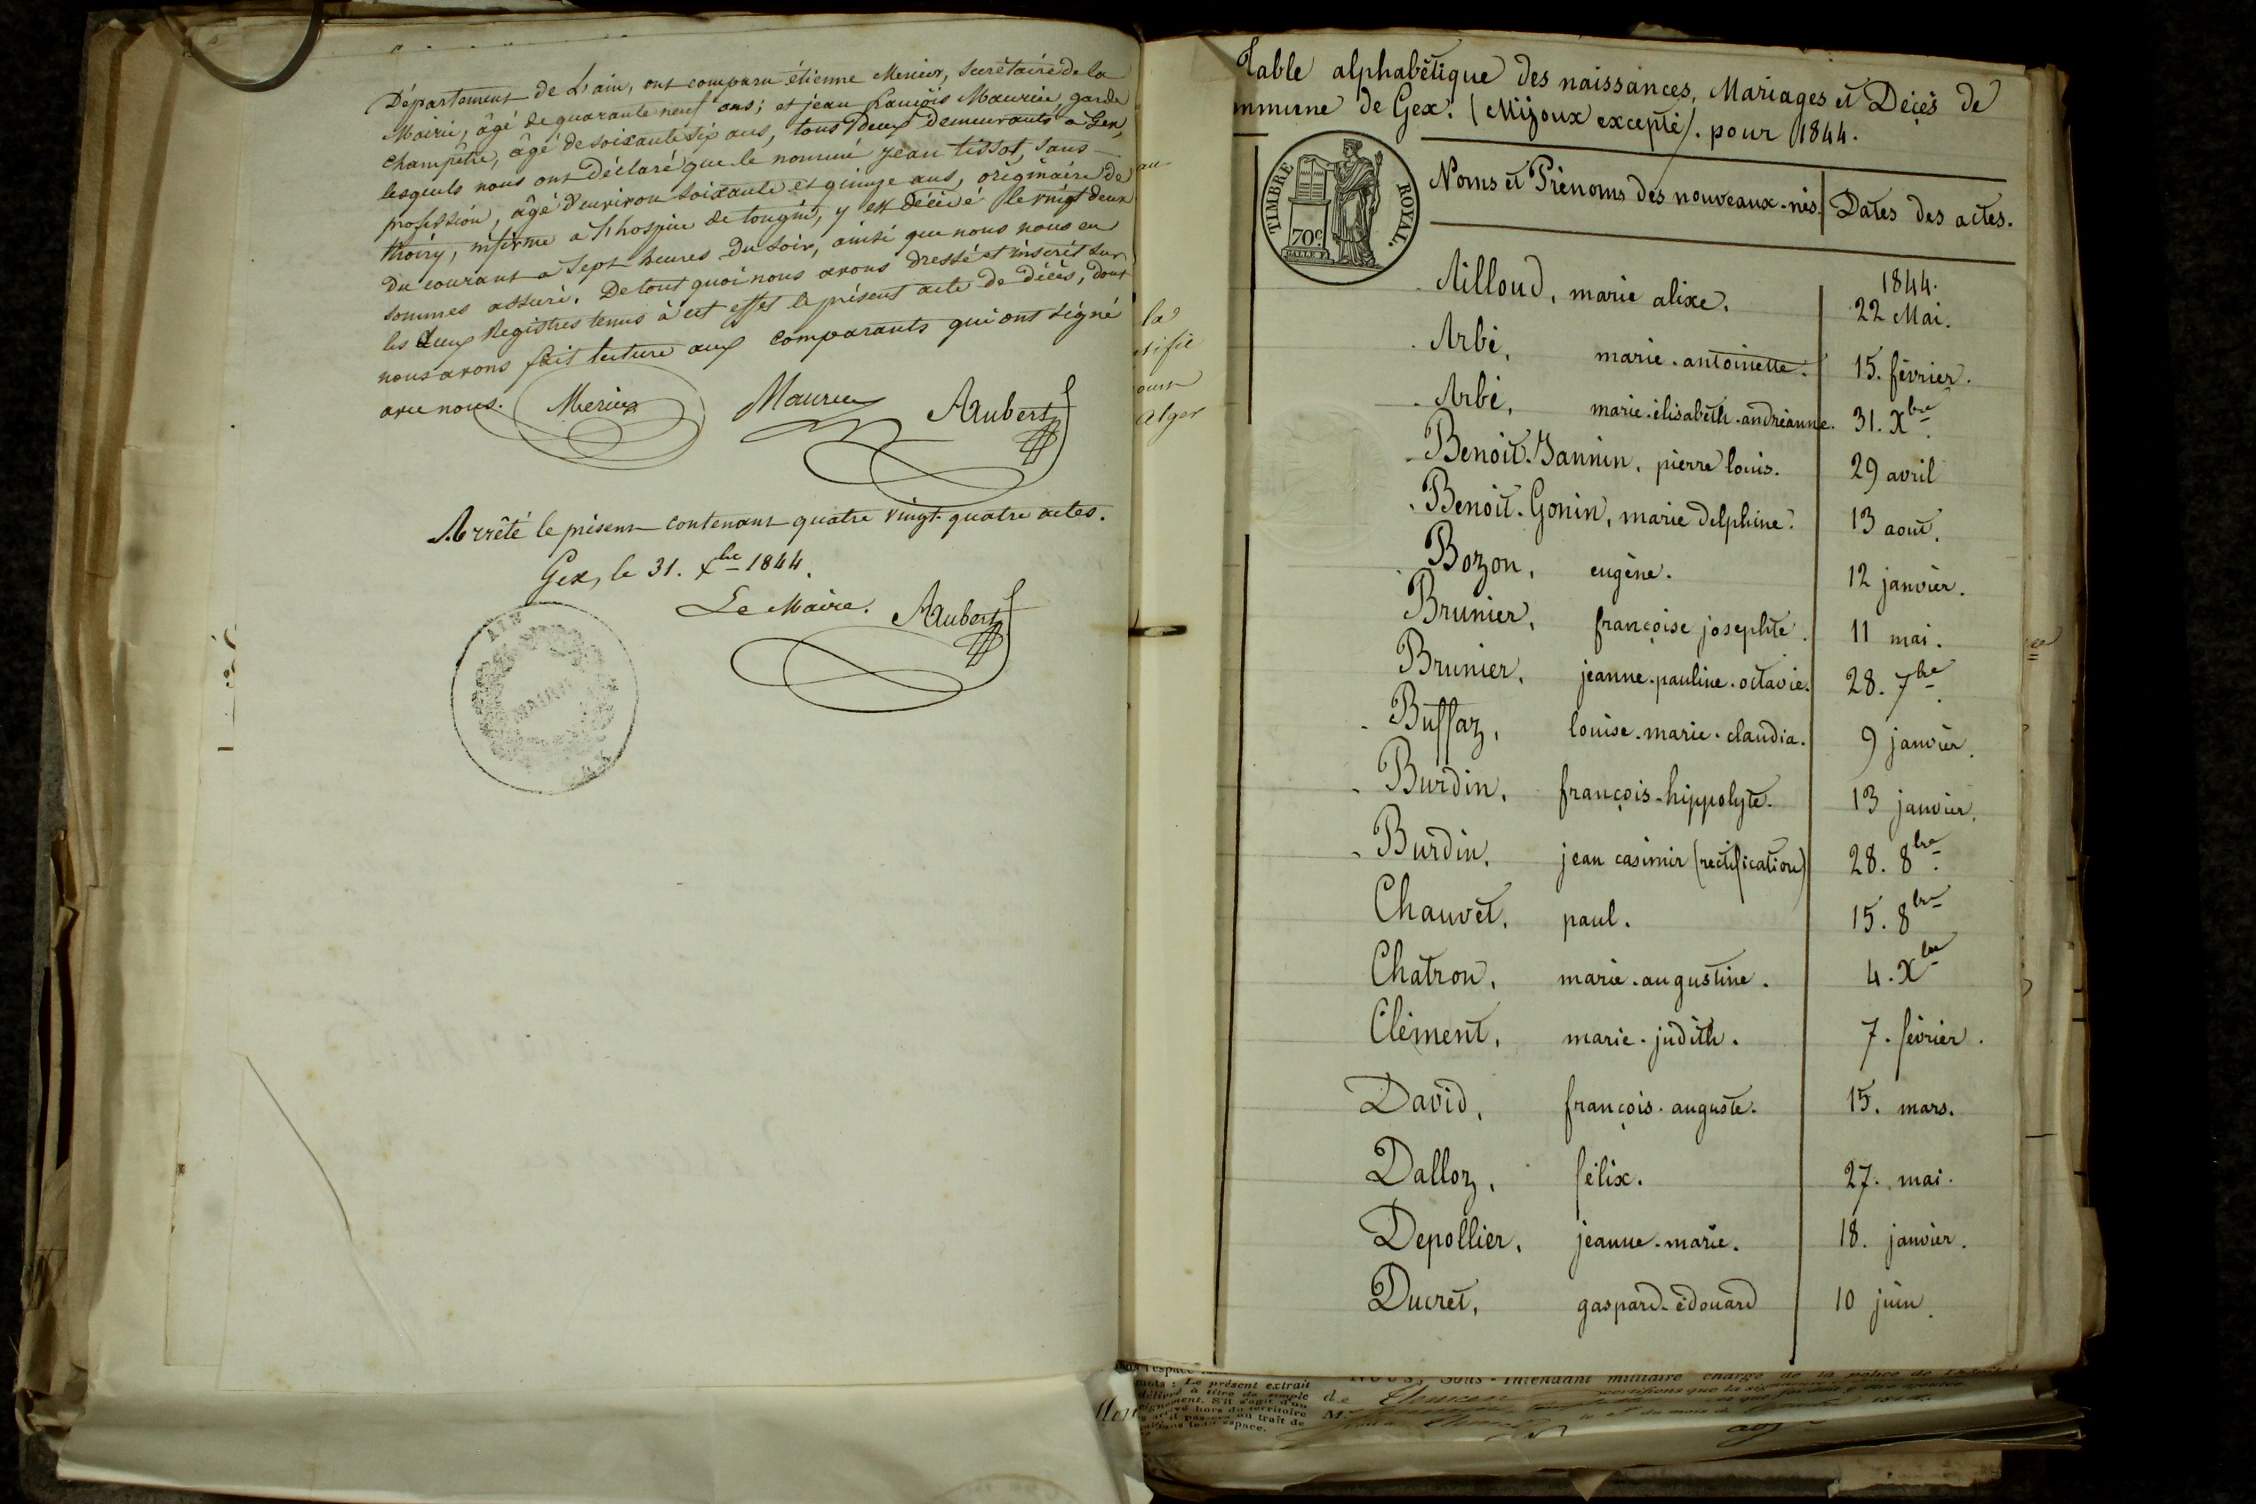 Département de L'ain, ont comparu étienne Merier, Secrétaire de la
Mairie, âgé de quarante neuf ans; et jean françois Maurier, garde
champêtre, âgé de soixante six ans, tous deux demeurants a Gex,
lesquels nous ont Déclaré que le nommé jean tissot, sans
profession, âgé d'environ soixante et quinze ans, originaire de
thoiry, infirme a l'hospice de tougin, y est décédé le vingt deux
du courant a sept heures du soir, ainsi que nous nous en
sommes assuré. De tout quoi nous avons dressé et inscrit sur
les deux Registres tenus à cet effet le présent acte de décès, dont
nous avons fait lecture aux comparants qui ont signé
avec nous.
Merier Maurier AAubert
Arrêté le présent contenant quatre vingt quatre actes.
Gex, le 31. Xbre 1844.
Le Maire. AAubert
AIN
MAIRIE
la
Alger
Table alphabétique des naissances, Mariages et Décès de
mmune de Gex. (Mijoux excepté). pour 1844.
TIMBRE ROYAL.
70c
Noms et Prénoms des nouveaux-nés. Dates des actes.
1844.
Ailloud, marie alixe. 22 Mai.
Arbé, marie-antoinette. 15. février.
Arbé, marie-élisabeth-andréanne. 31. Xbre
Benoit-Jannin, pierre louis. 29 avril
Benoit-Gonin, marie delphine. 13 aout.
Bozon, eugène. 12 janvier.
Brunier, françoise josephte. 11 mai.
Brunier, jeanne-pauline-octavie. 28. 7bre
Buffaz, louise-marie-claudia. 9 janvier.
Burdin, françois-hippolyte. 13 janvier.
Burdin, jean casimir (rectification) 28. 8bre
Chauvet, paul. 15. 8bre
Chatron, marie-augustine. 4. Xbre
Clément, marie-judith. 7. février.
David, françois-auguste. 15. mars.
Dalloz, félix. 27. mai.
Depollier, jeanne-marie. 18. janvier.
Ducret, gaspard-édouard 10 juin.
Le présent extrait
à titre de simple
S'il s'agit d'un
hors du territoire
un trait de
espace.
NOUS, Sous-Intendant militaire chargé de la police de
de